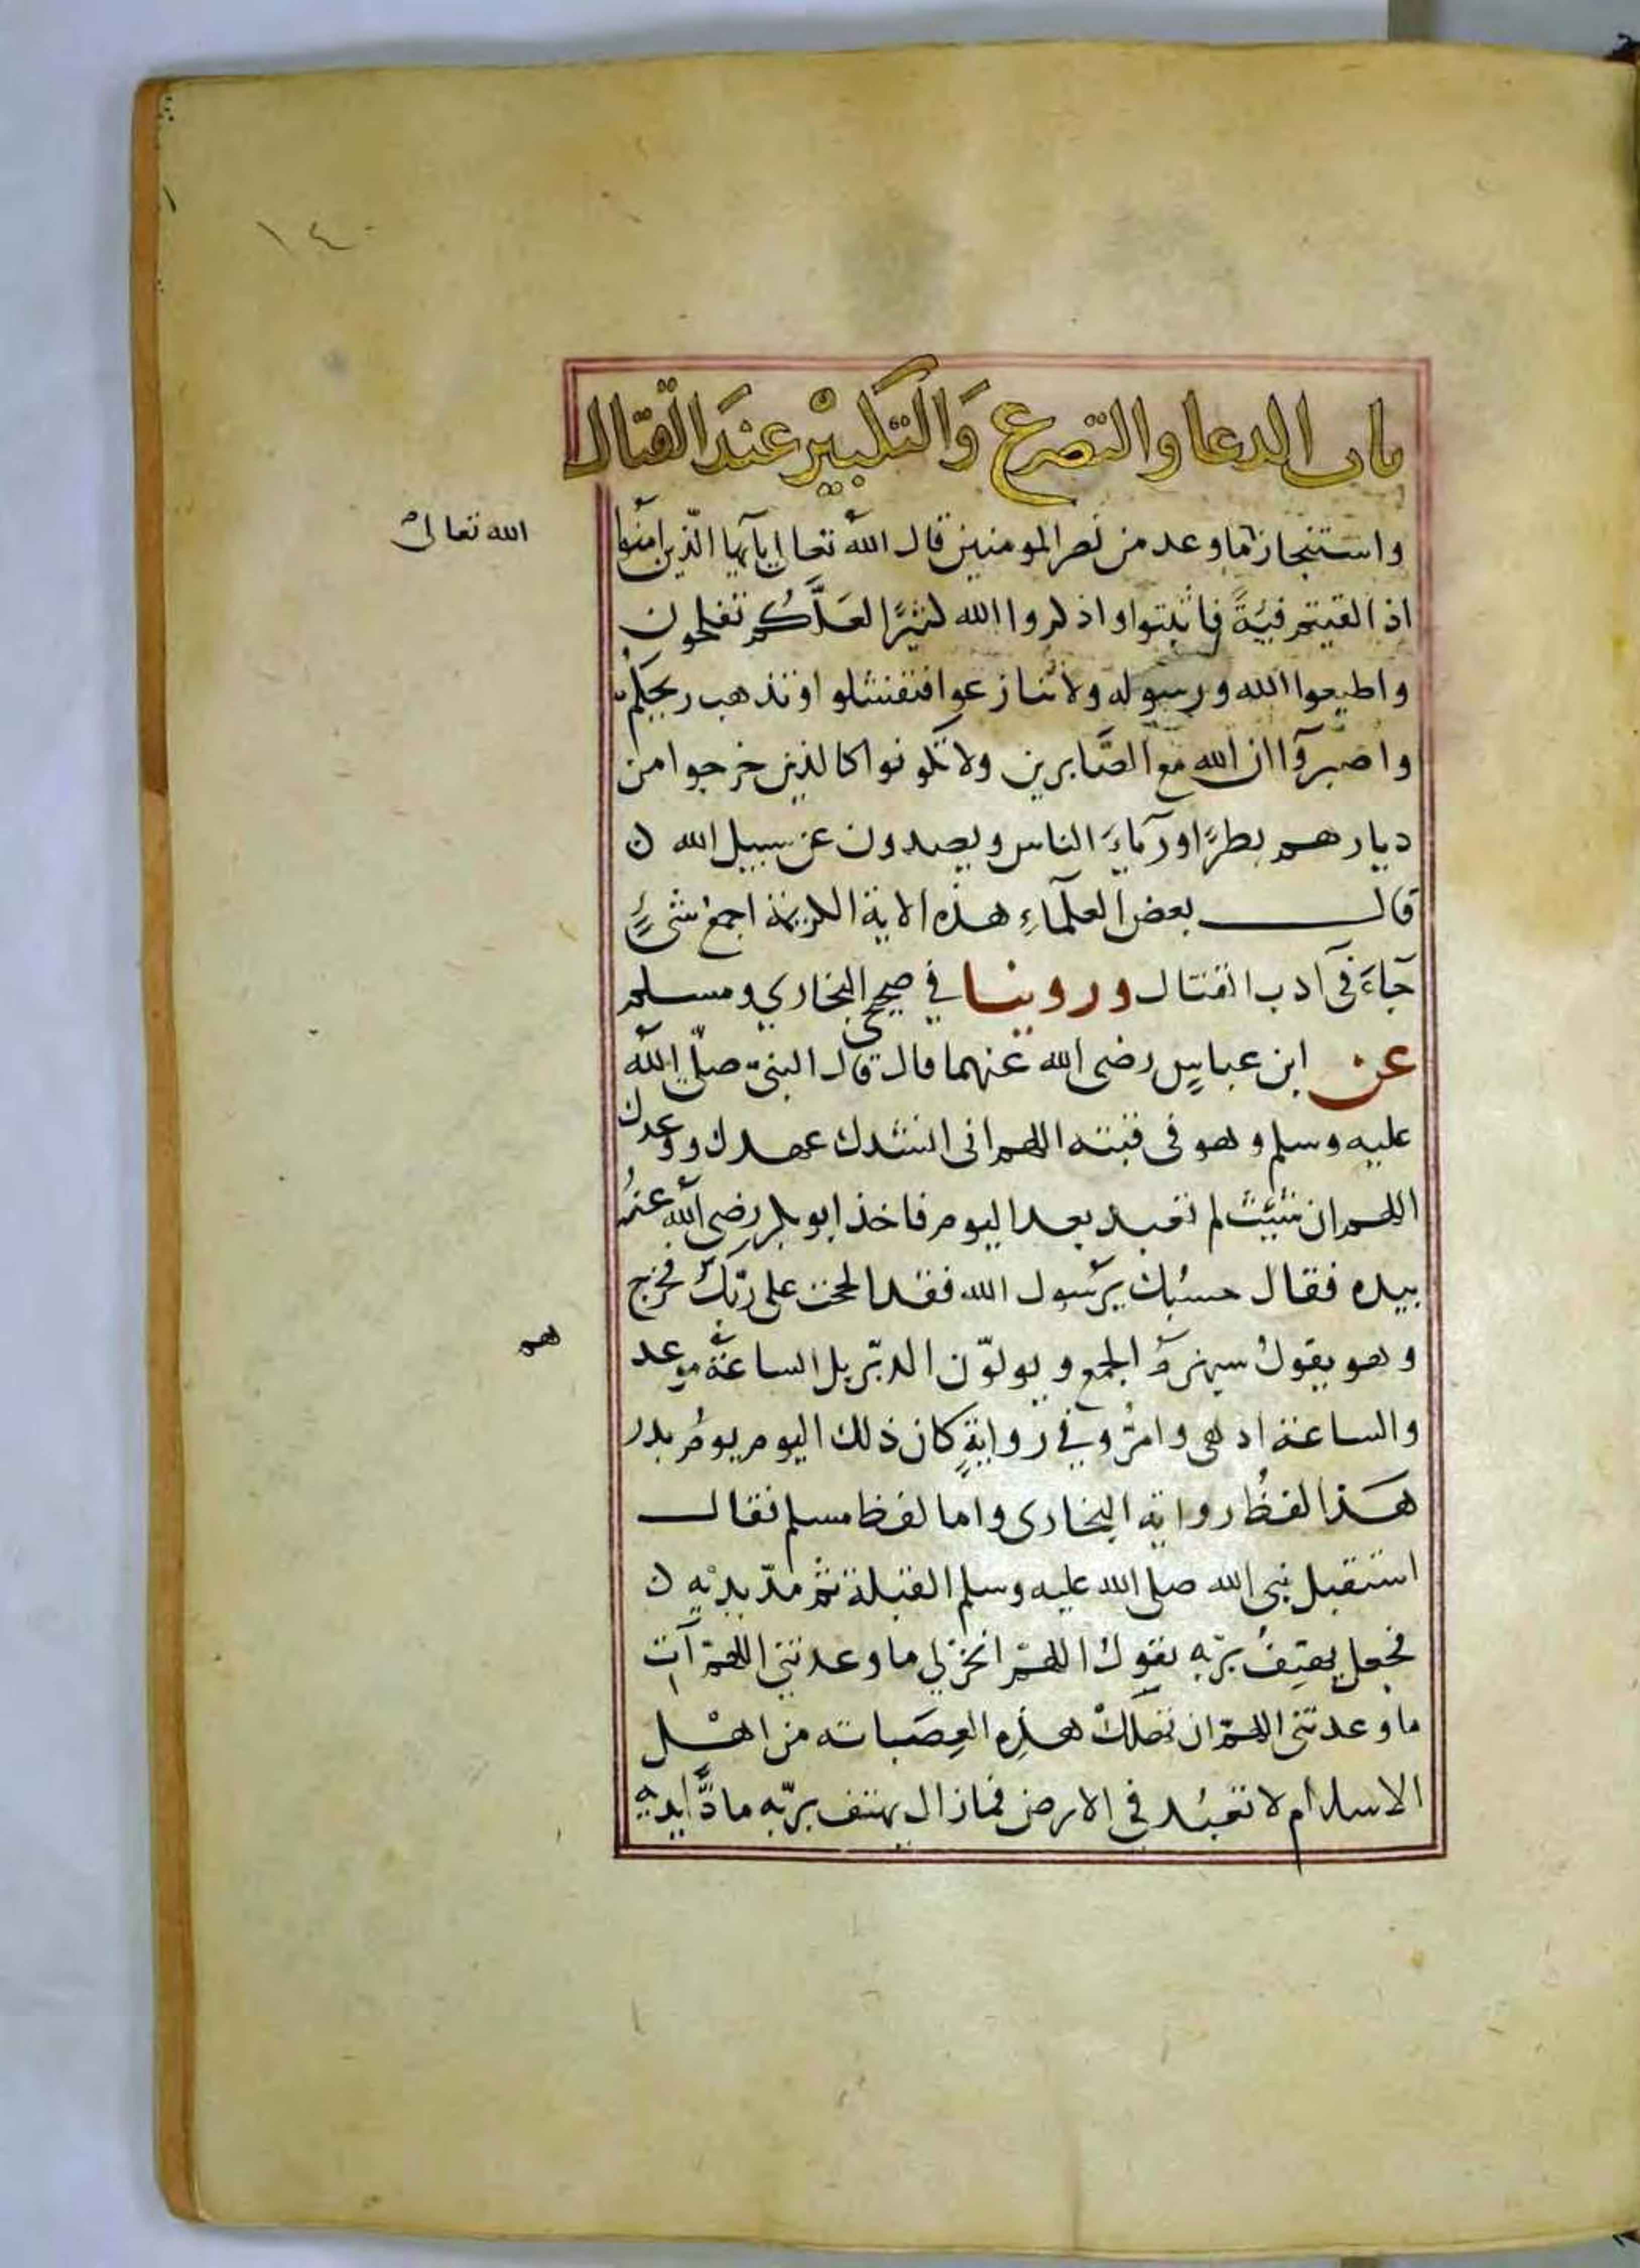 ١٤٠
باب الدعا والتضرع وَالتَكبيْر عندَ القتال
واستنجاز ما وعد من نصر المومنين قال الله تعالى يآيها الّذين امنُوا
الله تعالى
اذ القيتم فيةً فاثبتوا واذكروا الله كثيرًا لعَلّكُم تفلحون
واطيعوا الله ورسوله ولا تنازعوا فتفشلوا وتذهب ريحكم
واصبروآ ان الله مع الصّابرين ولا تكونوا كالذين خرجوا من
ديارهم بطرًا ورئاءَ الناس ويصدون عن سبيل الله ن
قال بعض العلماءِ هذه الاية الكريمة اجمع شئٍ
جآءَ في ادب القتال وروينا في صحيحى البخاري ومسلم
عن ابن عباسٍ رضى الله عنهما قال قال النبيّ صلّى الله
عليه وسلم وهو فى قبته اللهم انى انشدك عهدك ووعدك
اللهم ان شئت لم تعبد بعد اليوم فاخذ ابو بكر رضى الله عنهُ
بيده فقال حسبُك يرَسُول الله فقد الححت على ربّك فخرج
وهو يقولُ سيهزمُ الجمع ويولّون الدبّر بل الساعةُ موعد
هم
والساعة ادهى وامرُّ وفي روايةٍ كان ذلك اليوم يومُ بدر
هَذا لفظُ رواية البخارى واما لفظ مسلم فقال
استقبل نبى الله صلى الله عليه وسلم القبلة ثم مدّ يديْه ن
فجعل يهتِفُ بربّه يقولُ اللهمّ انجز لي ما وعدتني اللهمّ آت
ما وعدتنى اللهمّ ان تهلكْ هذِه العِصَبابه من اهْل
الاسلام لا تعبُد في الارض فمازال يهتف بربّه مادًّا يديه